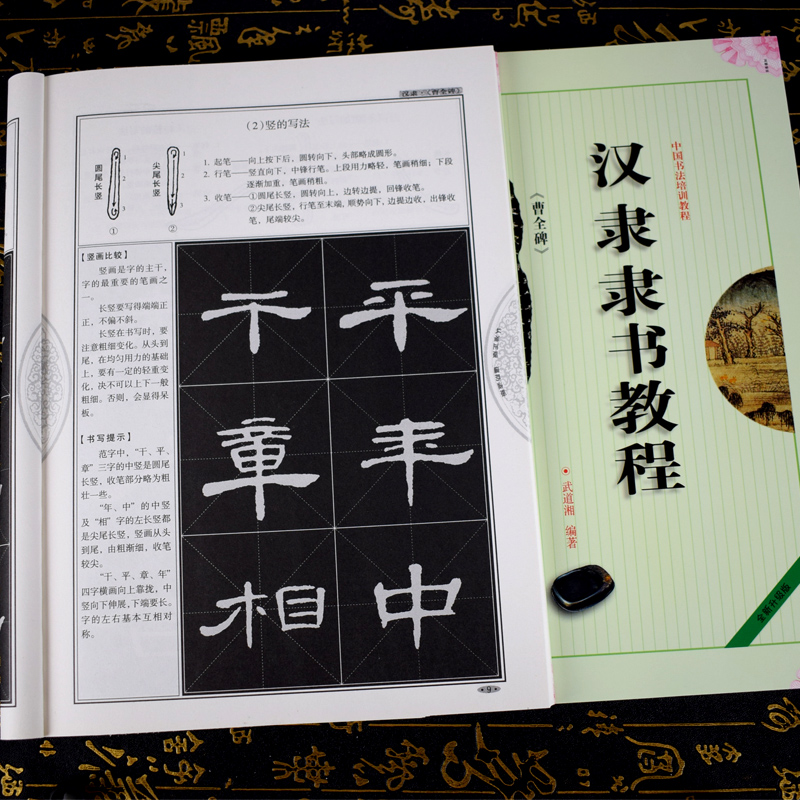 汉隶·《曹全碑》
（2）竖的写法
圆尾长竖
1
2
3
①
尖尾长竖
1
2
3
②
1. 起笔——向上按下后，圆转向下，头部略成圆形。
2. 行笔——竖直向下，中锋行笔。上段用力略轻，笔画稍细；下段
逐渐加重，笔画稍粗。
3. 收笔——①圆尾长竖，圆转向上，边转边提，回锋收笔。
②尖尾长竖，行笔至末端，顺势向下，边提边收，出锋收
笔，尾端较尖。
【竖画比较】
竖画是字的主干，
字的最重要的笔画之
一。
长竖要写得端端正
正，不偏不斜。
长竖在书写时，要
注意粗细变化。从头到
尾，在均匀用力的基础
上，要有一定的轻重变
化，决不可以上下一般
粗细。否则，会显得呆
板。
【书写提示】
范字中，“干、平、
章”三字的中竖是圆尾
长竖，收笔部分略为粗
壮一些。
“年、中”的中竖
及“相”字的左长竖都
是尖尾长竖，竖画从头
到尾，由粗渐细，收笔
较尖。
“干、平、章、年”
四字横画向上靠拢，中
竖向下伸展，下端要长。
字的左右基本互相对
称。
干 平
章 年
相 中
·9·
中国书法培训教程
汉隶隶书教程
《曹全碑》
武道湘 编著